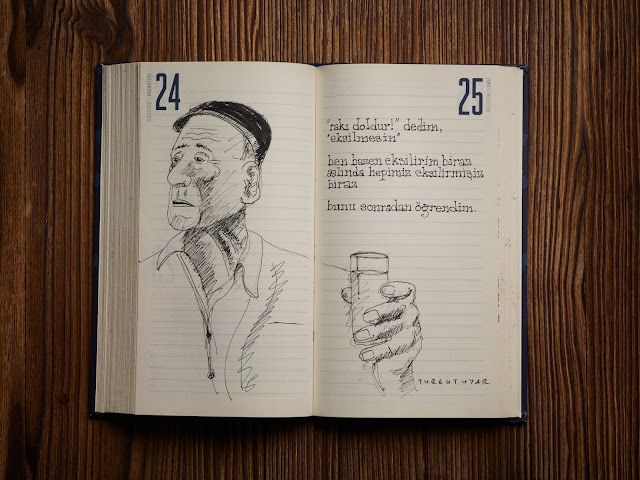 24
25
"rakı doldur!" dedim,
"eksilmesin"
ben bazen eksilirim biraz
aslında hepimiz eksilirmişiz
biraz
bunu sonradan öğrendim.
TURGUT UYAR